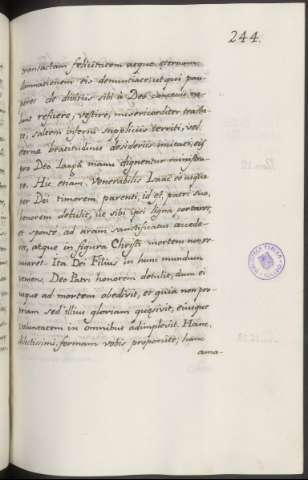 244.
transactam felicitatem atque æternam
damnationem eis denunciate; ut qui pau-
peres de divitiis sibi a Deo
reficere, vestire, misericorditer tracta-
re, saltem inferni suppliciis territi, vel
æternæ beatitudinis desideriis invitati, eis
pro Deo largâ manu dignentur ministra-
re. Hic etiam venerabilis Isaàc ob nigra-
ter Dei timorem parenti, id est, patri suo,
honorem detulit, ut sibi ipsi ligna portaret,
et sponte ad aram sanctificatus accede-
ret, atque in figura Christi mortem non re-
cusaret. Ita Dei Filius in hunc mundum
veniens, Deo Patri honorem detulit, dum ei
usque ad mortem obedivit, et quia non pro-
priam sed illius gloriam quæsivit, eiusque
voluntatem in omnibus adimplevit. Hanc,
dilectissimi, formam vobis proponite; hanc
ama-